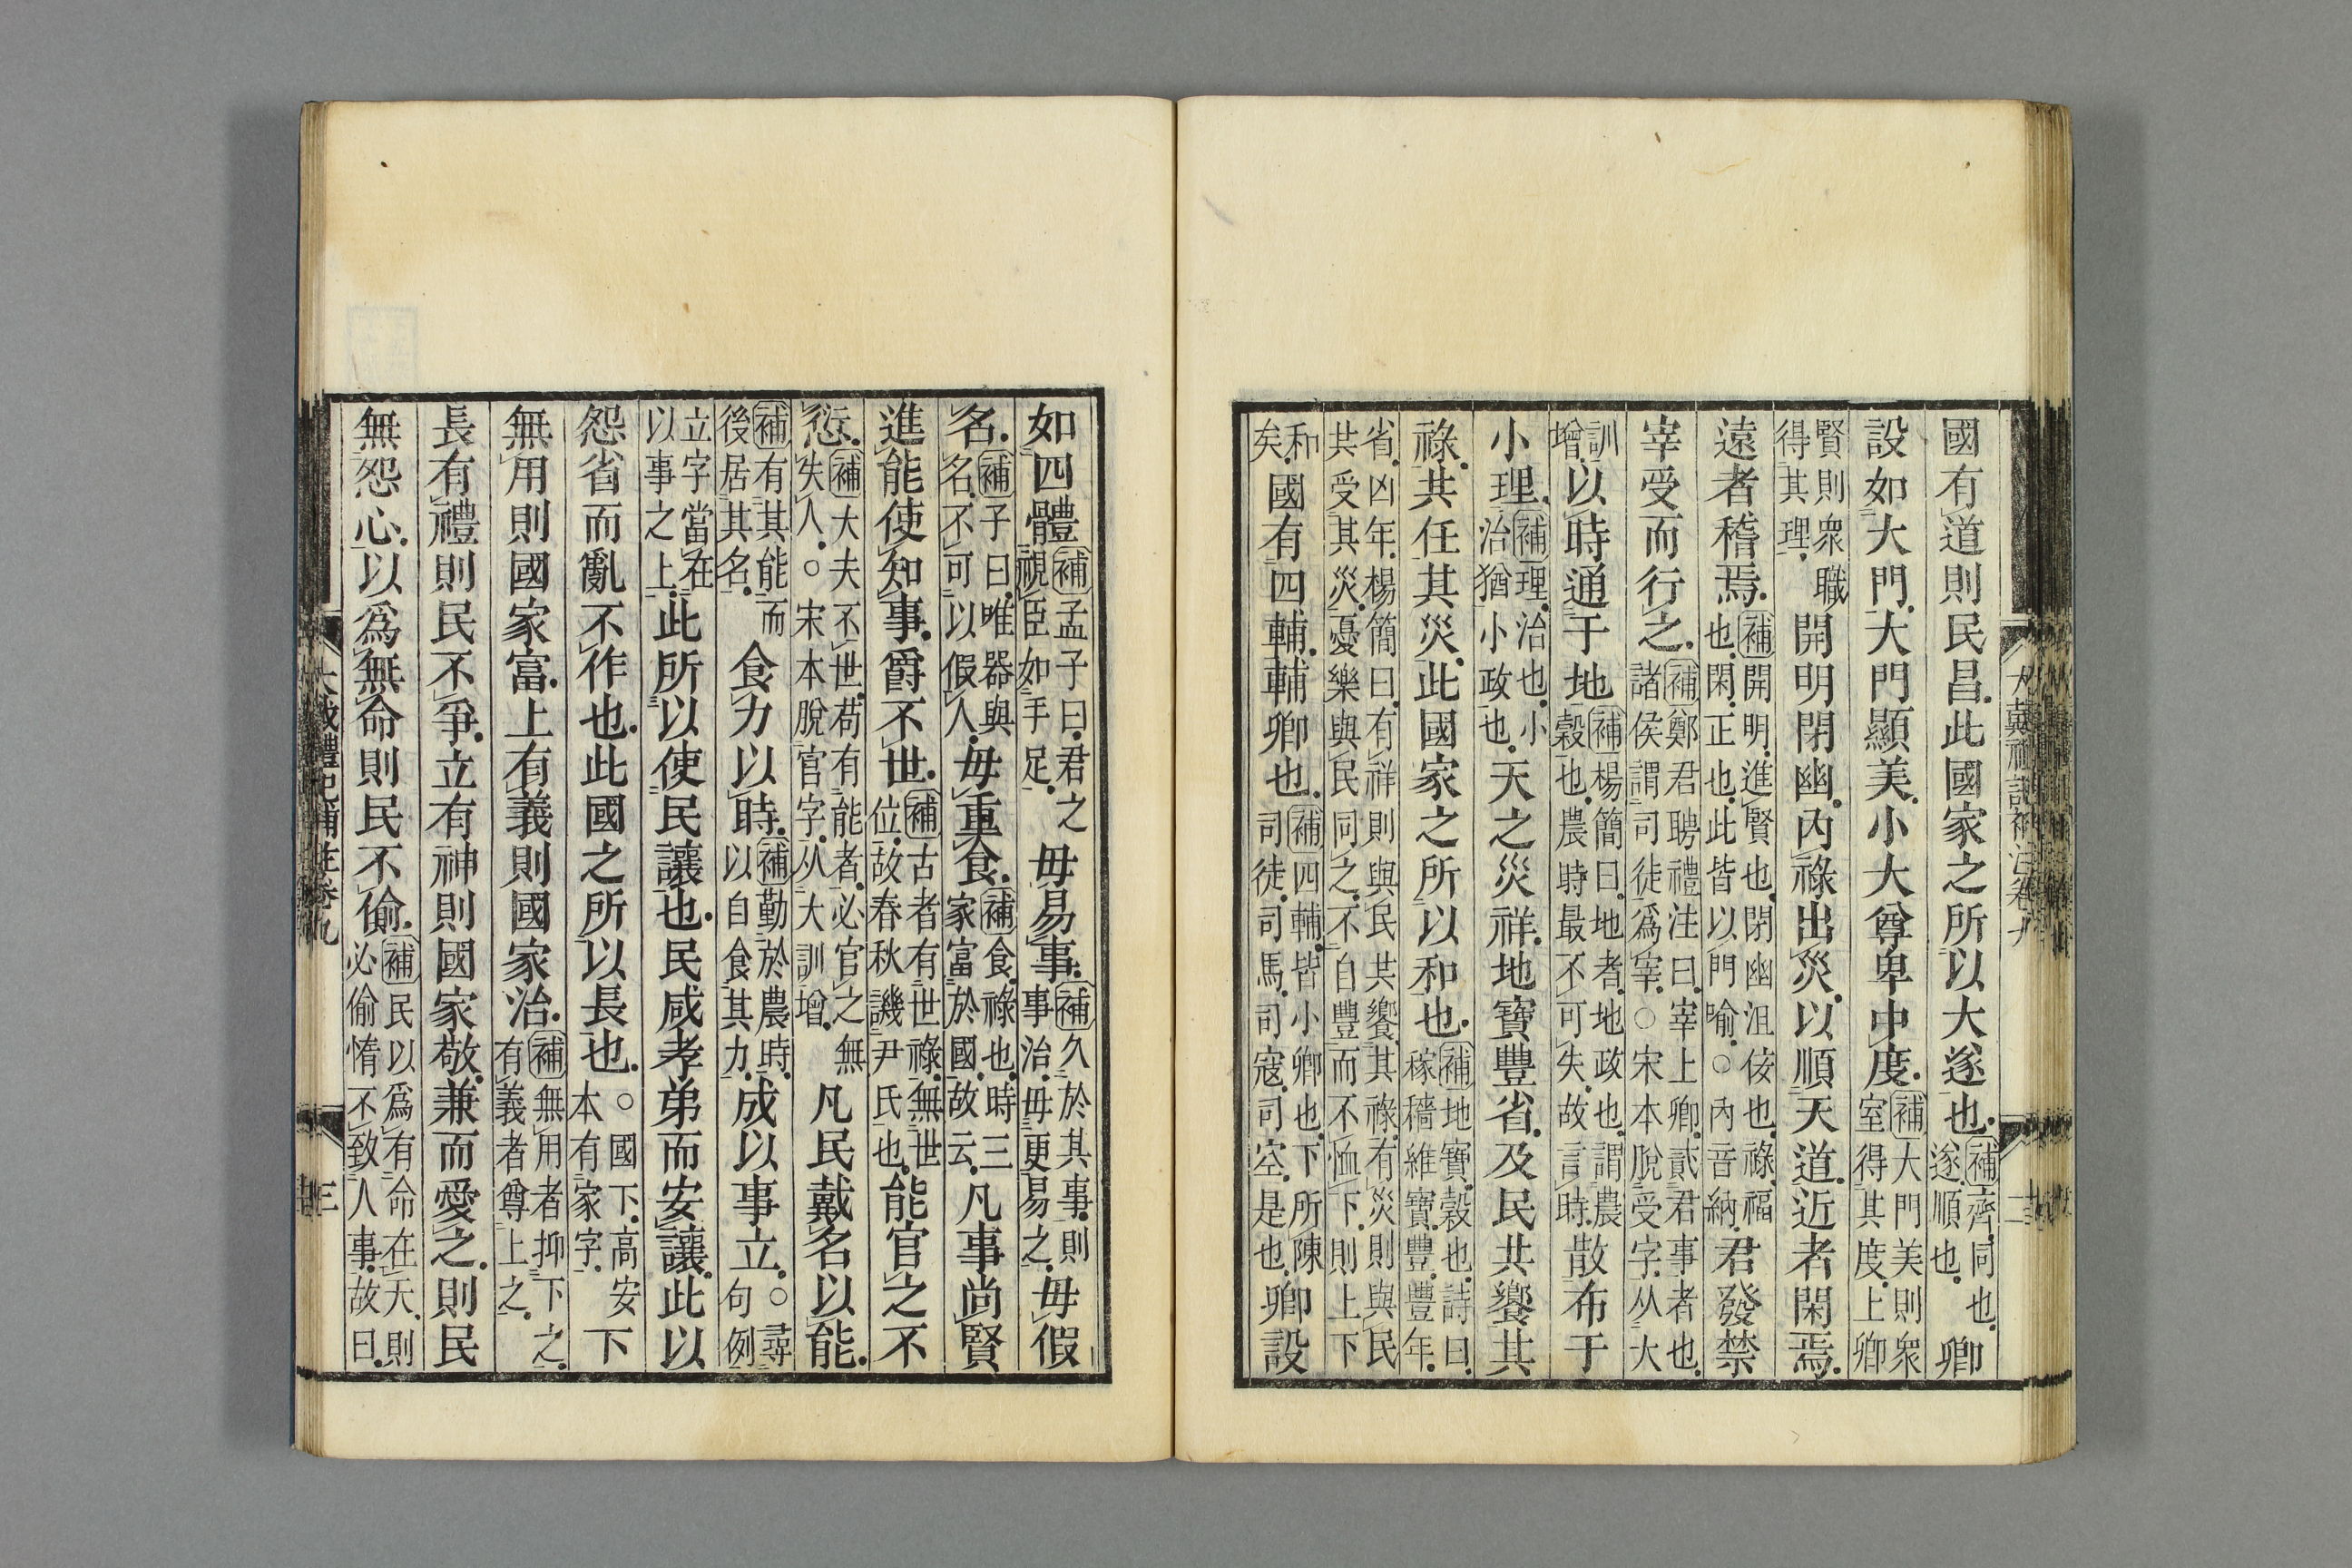 國有道則民昌此國家之所以大遂也補齊同也遂順也卿
設如大門大門顯美小大尊卑中度補大門美則衆室得其度上卿
賢則衆職得其理開明閉幽內祿出災以順天道近者閑焉
遠者稽焉補開明進賢也閉幽沮佞也祿福也閑正也此皆以門喻○內音納君發禁
宰受而行之補鄭君聘禮注曰宰上卿貳君事者也諸侯謂司徒爲宰○宋本脫受字从大
訓增以時通于地補楊簡曰地者地政也謂農穀也農時最不可失故言時散布于
小理補理治也小治猶小政也天之災祥地寶豐省及民共饗其
祿共任其災此國家之所以和也補地寶穀也詩曰稼穡維寶豐豐年
省凶年楊簡曰有祥則與民共饗其祿有災則與民共受其災憂樂與民同之不自豐而不恤下則上下
和矣國有四輔輔卿也補四輔皆小卿也下所陳司徒司馬司寇司空是也卿設
大戴禮記補注卷九
二
如四體補孟子曰君之視臣如手足毋易事補久於其事則事治毋更易之毋假
名補子曰唯器與名不可以假人毋重食補食祿也時三家富於國故云凡事尚賢
進能使知事爵不世補古者有世祿無世位故春秋譏尹氏也能官之不
愆補大夫不世苟有能者必官之無失人○宋本脫官字从大訓增凡民戴名以能
補有其能而後居其名食力以時補勤於農時以自食其力成以事立○尋句例
立字當在以事之上此所以使民讓也民咸孝弟而安讓此以
怨省而亂不作也此國之所以長也○國下高安本有家字下
無用則國家富上有義則國家治補無用者抑下之有義者尊上之
長有禮則民不爭立有神則國家敬兼而愛之則民
無怨心以爲無命則民不偷補民以爲有命在天則必偷惰不致人事故曰
大戴禮記補注卷九
三